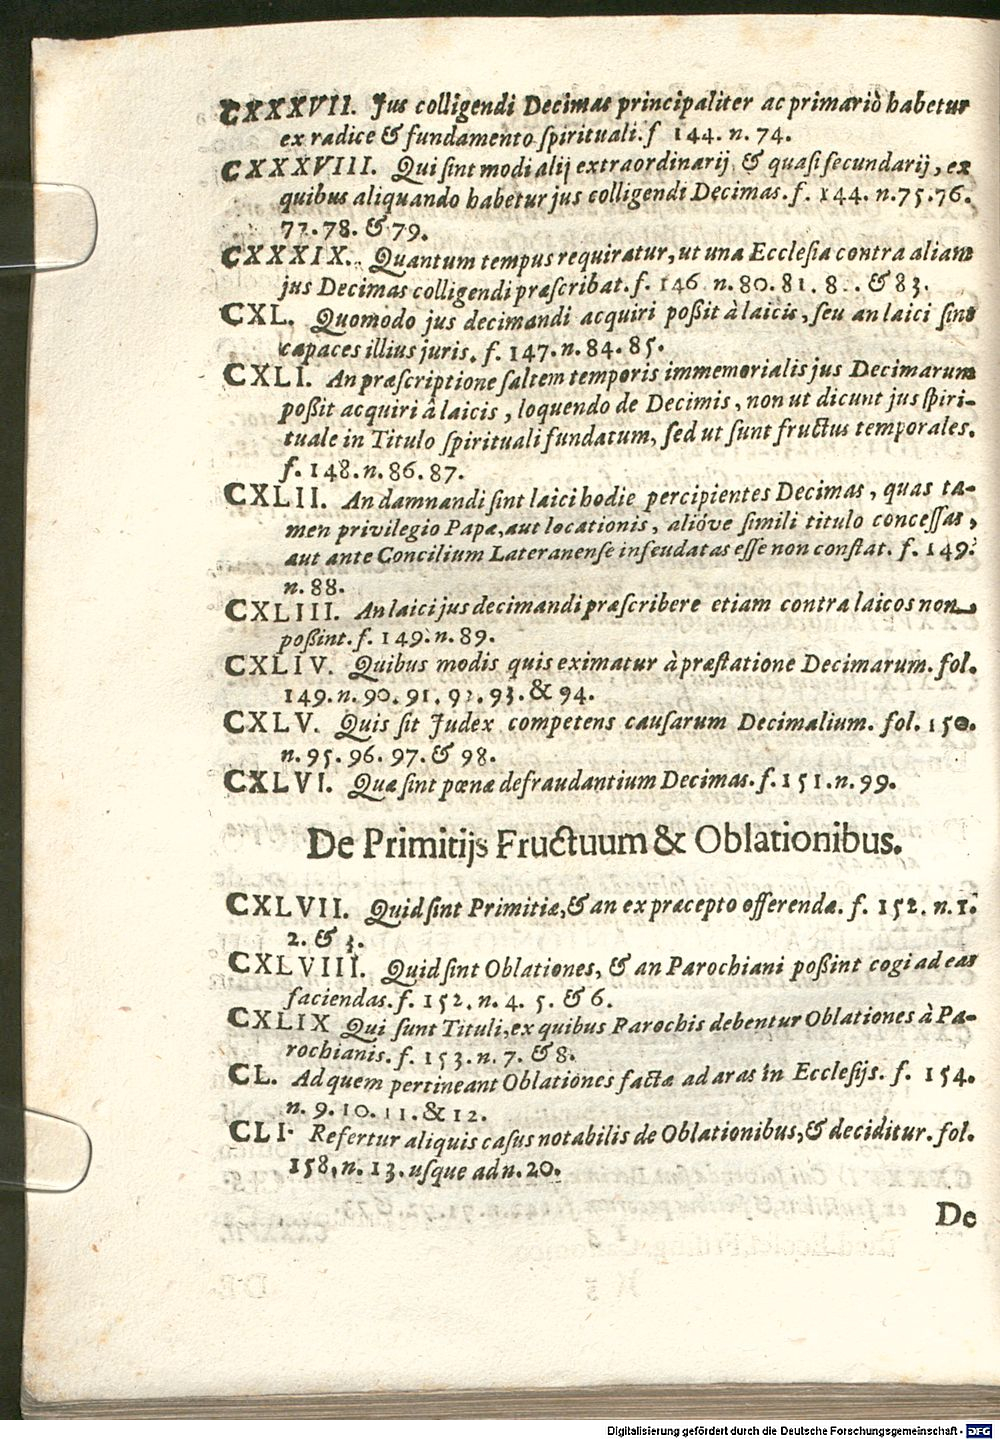 CXXXVII. Jus colligendi Decimas principaliter ac primariò habetur
ex radice & fundamento spirituali. f 144. n. 74.
CXXXVIII. Qui sint modi alij extraordinarij & quasi secundarij, ex
quibus aliquando habetur jus colligendi Decimas. f. 144. n. 75. 76.
77. 78. & 79.
CXXXIX. Quantum tempus requiratur, ut una Ecclesia contra aliam
jus Decimas colligendi præscribat. f. 146 n. 80. 81. 8 . . & 83.
CXL. Quomodo jus decimandi acquiri poßit à laicis, seu an laici sint
capaces illius juris. f. 147. n. 84. 85.
CXLI. An præscriptione saltem temporis immemorialis jus Decimarum
poßit acquiri â laicis, loquendo de Decimis, non ut dicunt jus spiri-
tuale in Titulo spirituali fundatum, sed ut sunt fructus temporales.
f. 148. n. 86. 87.
CXLII. An damnandi sint laici hodie percipientes Decimas, quas ta-
men privilegio Papæ, aut locationis, alióve simili titulo concessas,
aut ante Concilium Lateranense infeudatas esse non constat. f. 149.
n. 88.
CXLIII. An laici jus decimandi præscribere etiam contra laicos non
poßint. f. 149. n. 89.
CXLIV. Quibus modis quis eximatur à præstatione Decimarum. fol.
149. n. 90. 91. 92. 93. & 94.
CXLV. Quis sit Judex competens causarum Decimalium. fol. 150.
n. 95. 96. 97. & 98.
CXLVI. Quæ sint pœnæ defraudantium Decimas. f. 151. n. 99.
De Primitijs Fructuum & Oblationibus.
CXLVII. Quid sint Primitiæ, & an ex præcepto offerendæ. f. 152. n. 1.
2. & 3.
CXLVIII. Quid sint Oblationes, & an Parochiani poßint cogi ad eas
faciendas. f. 152. n. 4. 5. & 6.
CXLIX Qui sunt Tituli, ex quibus Parochis debentur Oblationes à Pa-
rochianis. f. 153. n. 7. & 8.
CL. Ad quem pertineant Oblationes factæ ad aras in Ecclesijs. f. 154.
n. 9. 10. 11. & 12.
CLI. Refertur aliquis casus notabilis de Oblationibus, & deciditur. fol.
158. n. 13. usque ad n. 20.
De
Digitalisierung gefördert durch die Deutsche Forschungsgemeinschaft - DFG